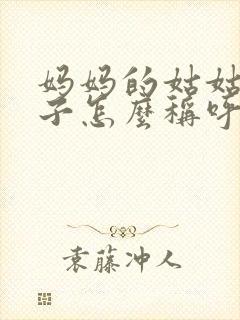 妈妈的姑姑
子怎麼稱呼
袁藤冲人